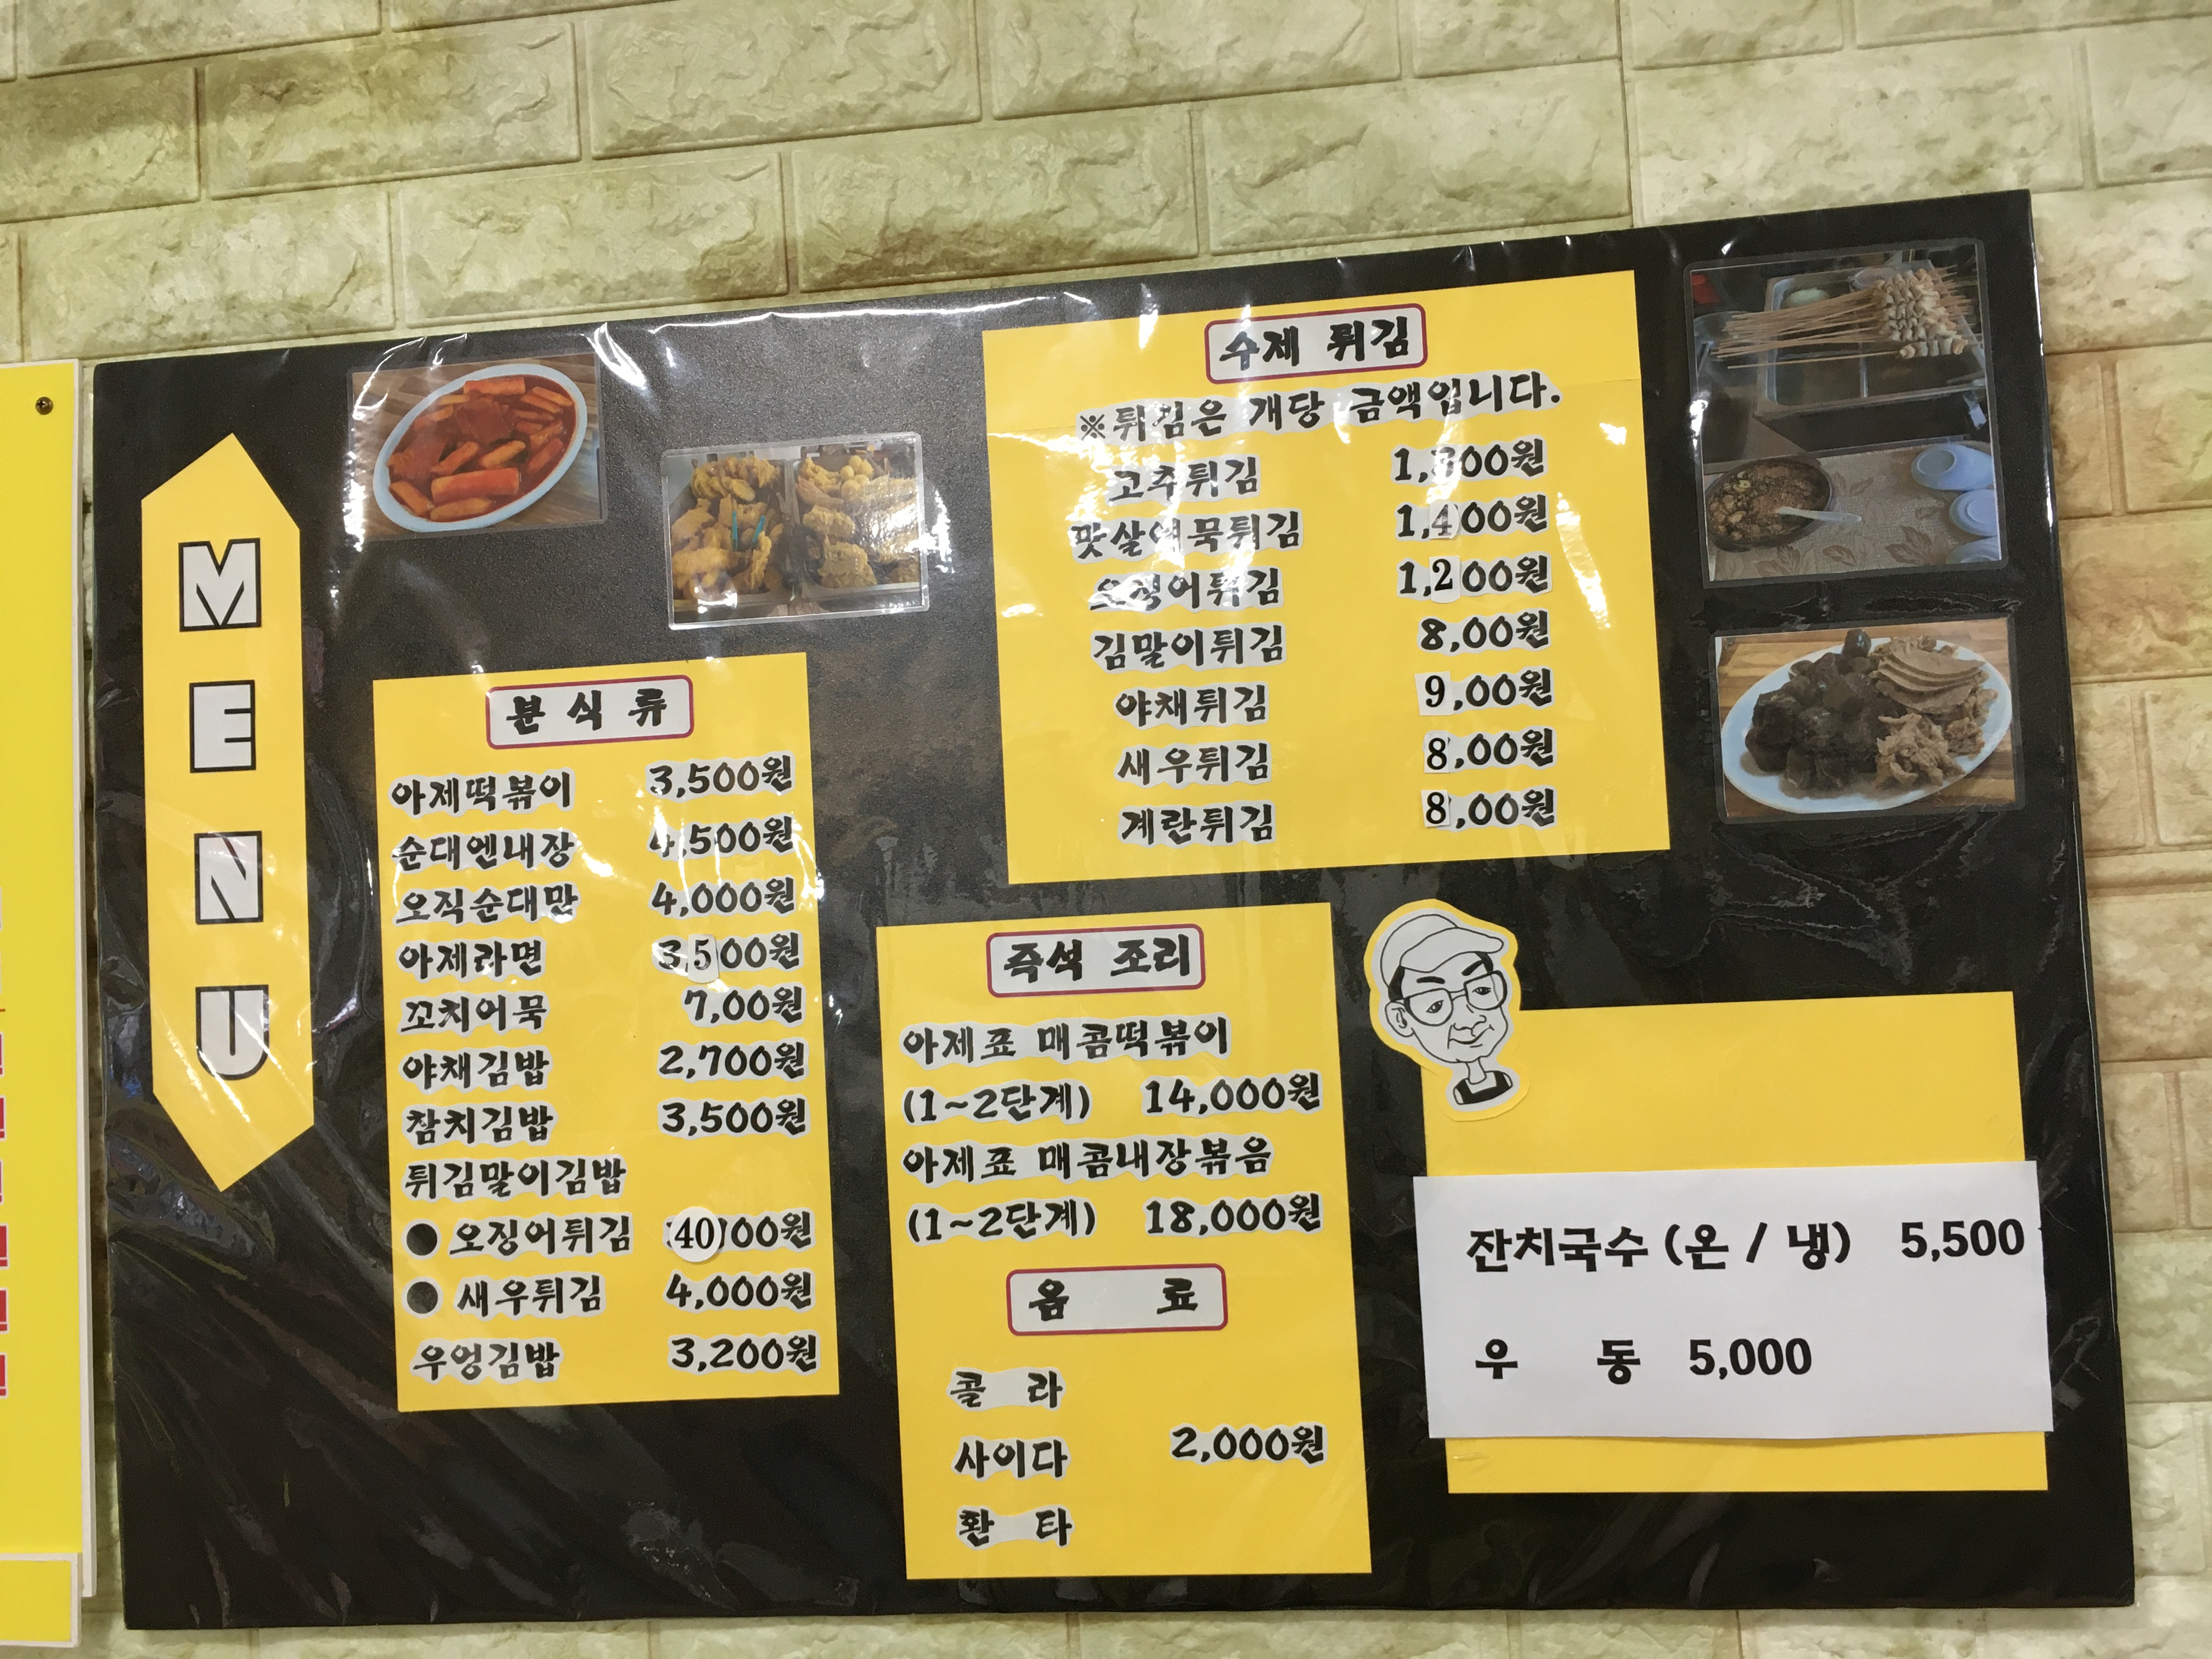 MENU
분식류
아제떡볶이 3,500원
순대엔내장 4,500원
오직순대만 4,000원
아제라면 3,500원
꼬치어묵 7,00원
야채김밥 2,700원
참치김밥 3,500원
튀김말이김밥
● 오징어튀김 4000원
● 새우튀김 4,000원
우엉김밥 3,200원
수제 튀김
※튀김은 개당 금액입니다.
고추튀김 1,300원
맛살어묵튀김 1,400원
오징어튀김 1,200원
김말이튀김 8,00원
야채튀김 9,00원
새우튀김 8,00원
계란튀김 8,00원
즉석 조리
아제표 매콤떡볶이
(1~2단계) 14,000원
아제표 매콤내장볶음
(1~2단계) 18,000원
음 료
콜 라
사이다 2,000원
환 타
잔치국수 (온 / 냉) 5,500
우 동 5,000